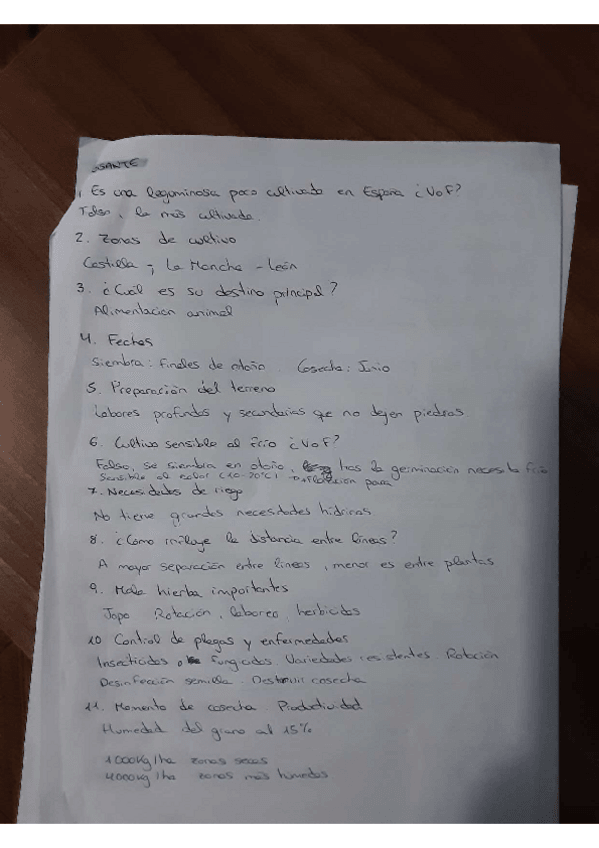 1. Es una leguminosa poco cultivada en España ¿VoF?
Falso, la más cultivada.
2. Zonas de cultivo
Castilla - La Mancha - León
3. ¿Cuál es su destino principal?
Alimentación animal
4. Fechas
Siembra: Finales de otoño. Cosecha: Inio
5. Preparación del terreno
Labores profundas y secundarias que no dejen piedras
6. Cultivo sensible al frío ¿VoF?
Falso, se siembra en otoño, tras la germinación necesita frío
Sensible al calor (10-20ºC) Floración para
7. Necesidades de riego
No tiene grandes necesidades hídricas.
8. ¿Como influye la distancia entre líneas?
A mayor separación entre líneas, menor es entre plantas
9. Mala hierba importantes
Jopo Rotación, laboreo, herbicidas
10 Control de plagas y enfermedades
Insecticidas Fungicidas. Variedades resistentes. Rotación
Desinfección semilla. Destruir cosecha
11. Momento de cosecha. Productividad
Humedad del grano al 15%
1000Kg/ha zonas secas
4000kg/ha zonas más húmedas